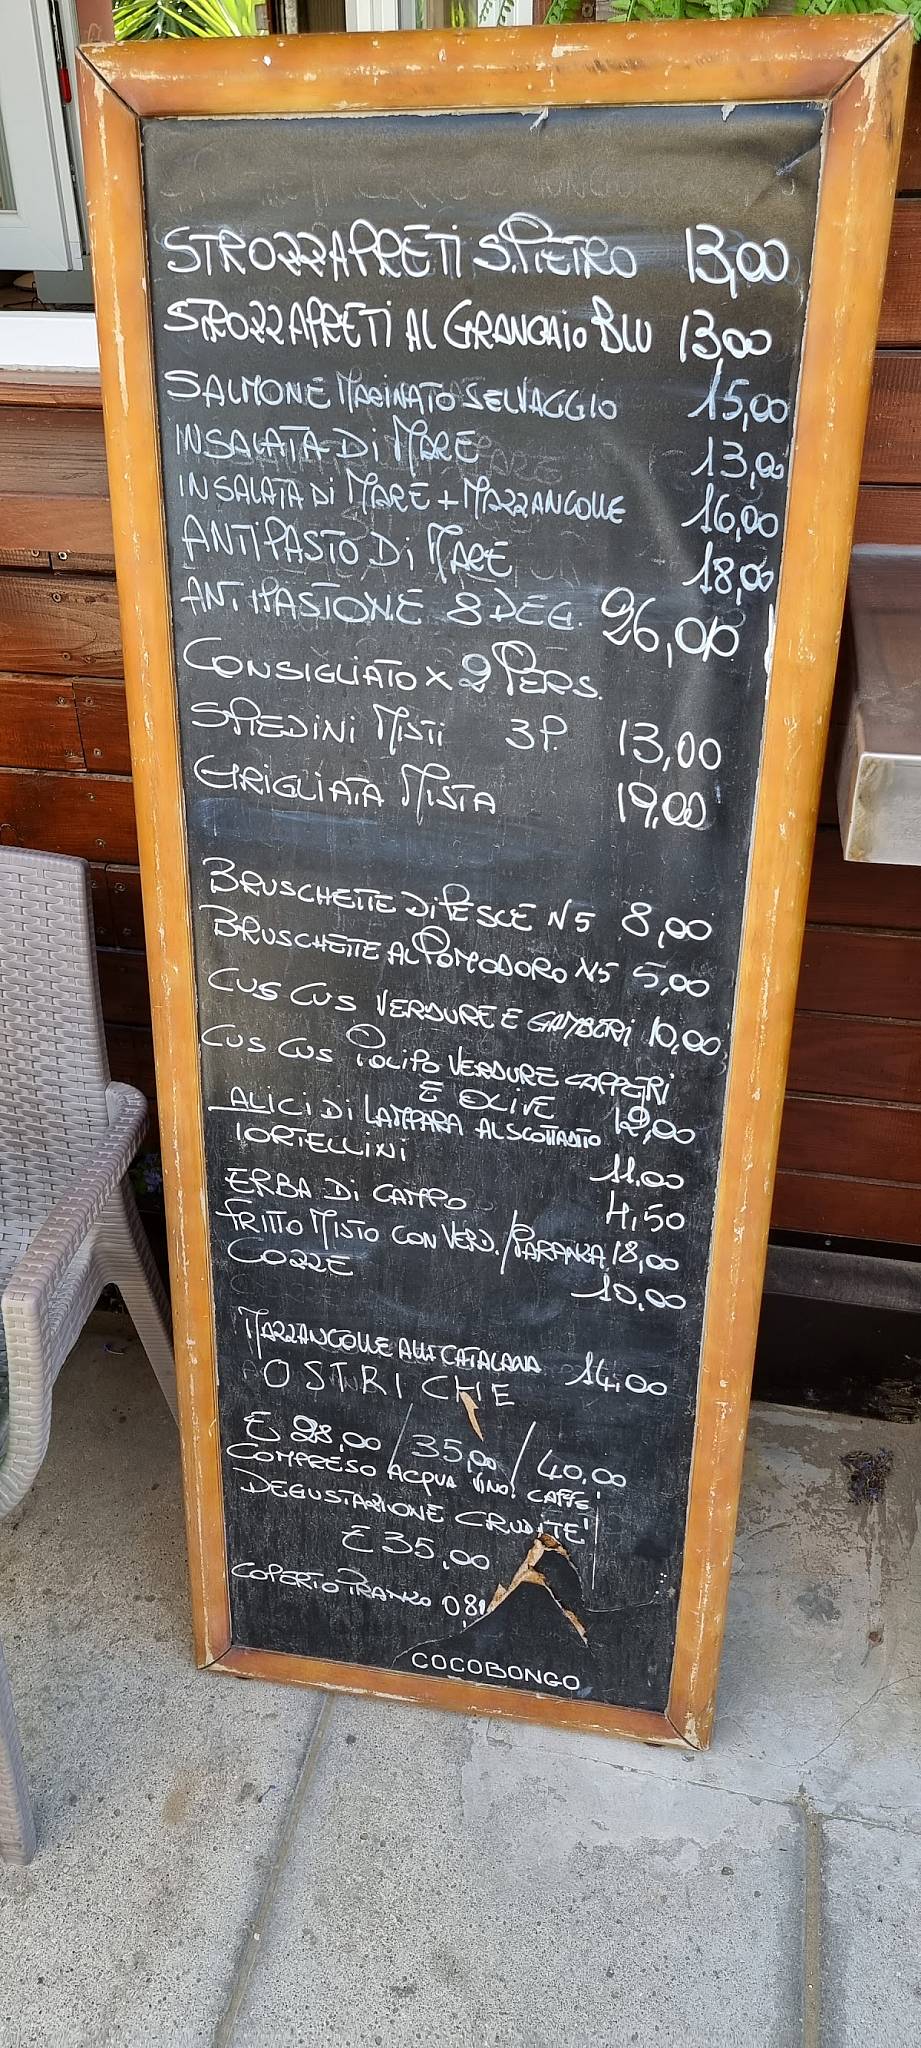 STROZZAPRETI S.PIETRO 13,00
STROZZAPRETI AL GRANCHIO BLU 13,00
SALMONE MARINATO SELVAGGIO 15,00
INSALATA DI MARE 13,00
INSALATA DI MARE + MAZZANCOLLE 16,00
ANTIPASTO DI MARE 18,00
ANTIPASTONE 8 DEG. 26,00
CONSIGLIATO X 2 PERS.
SPIEDINI MISTI 3P. 13,00
GRIGLIATA MISTA 19,00
BRUSCHETTE DI PESCE N5 8,00
BRUSCHETTE AL POMODORO N5 5,00
CUS CUS VERDURE E GAMBERI 10,00
CUS CUS POLIPO VERDURE CAPPERI
E OLIVE 12,00
ALICI DI LAMPARA AL SCOTTADITO
TORTELLINI 11.00
ERBA DI CAMPO 4,50
FRITTO MISTO CON VERD. / PARANZA 18,00
COZZE 10,00
MAZZANCOLLE ALLA CATALANA 14,00
OSTRICHE
€ 28,00 / 35,00 / 40,00
COMPRESO ACQUA VINO CAFFE'
DEGUSTAZIONE CRUDITE'
€ 35,00
COPERTO PRANZO
COCOBONGO